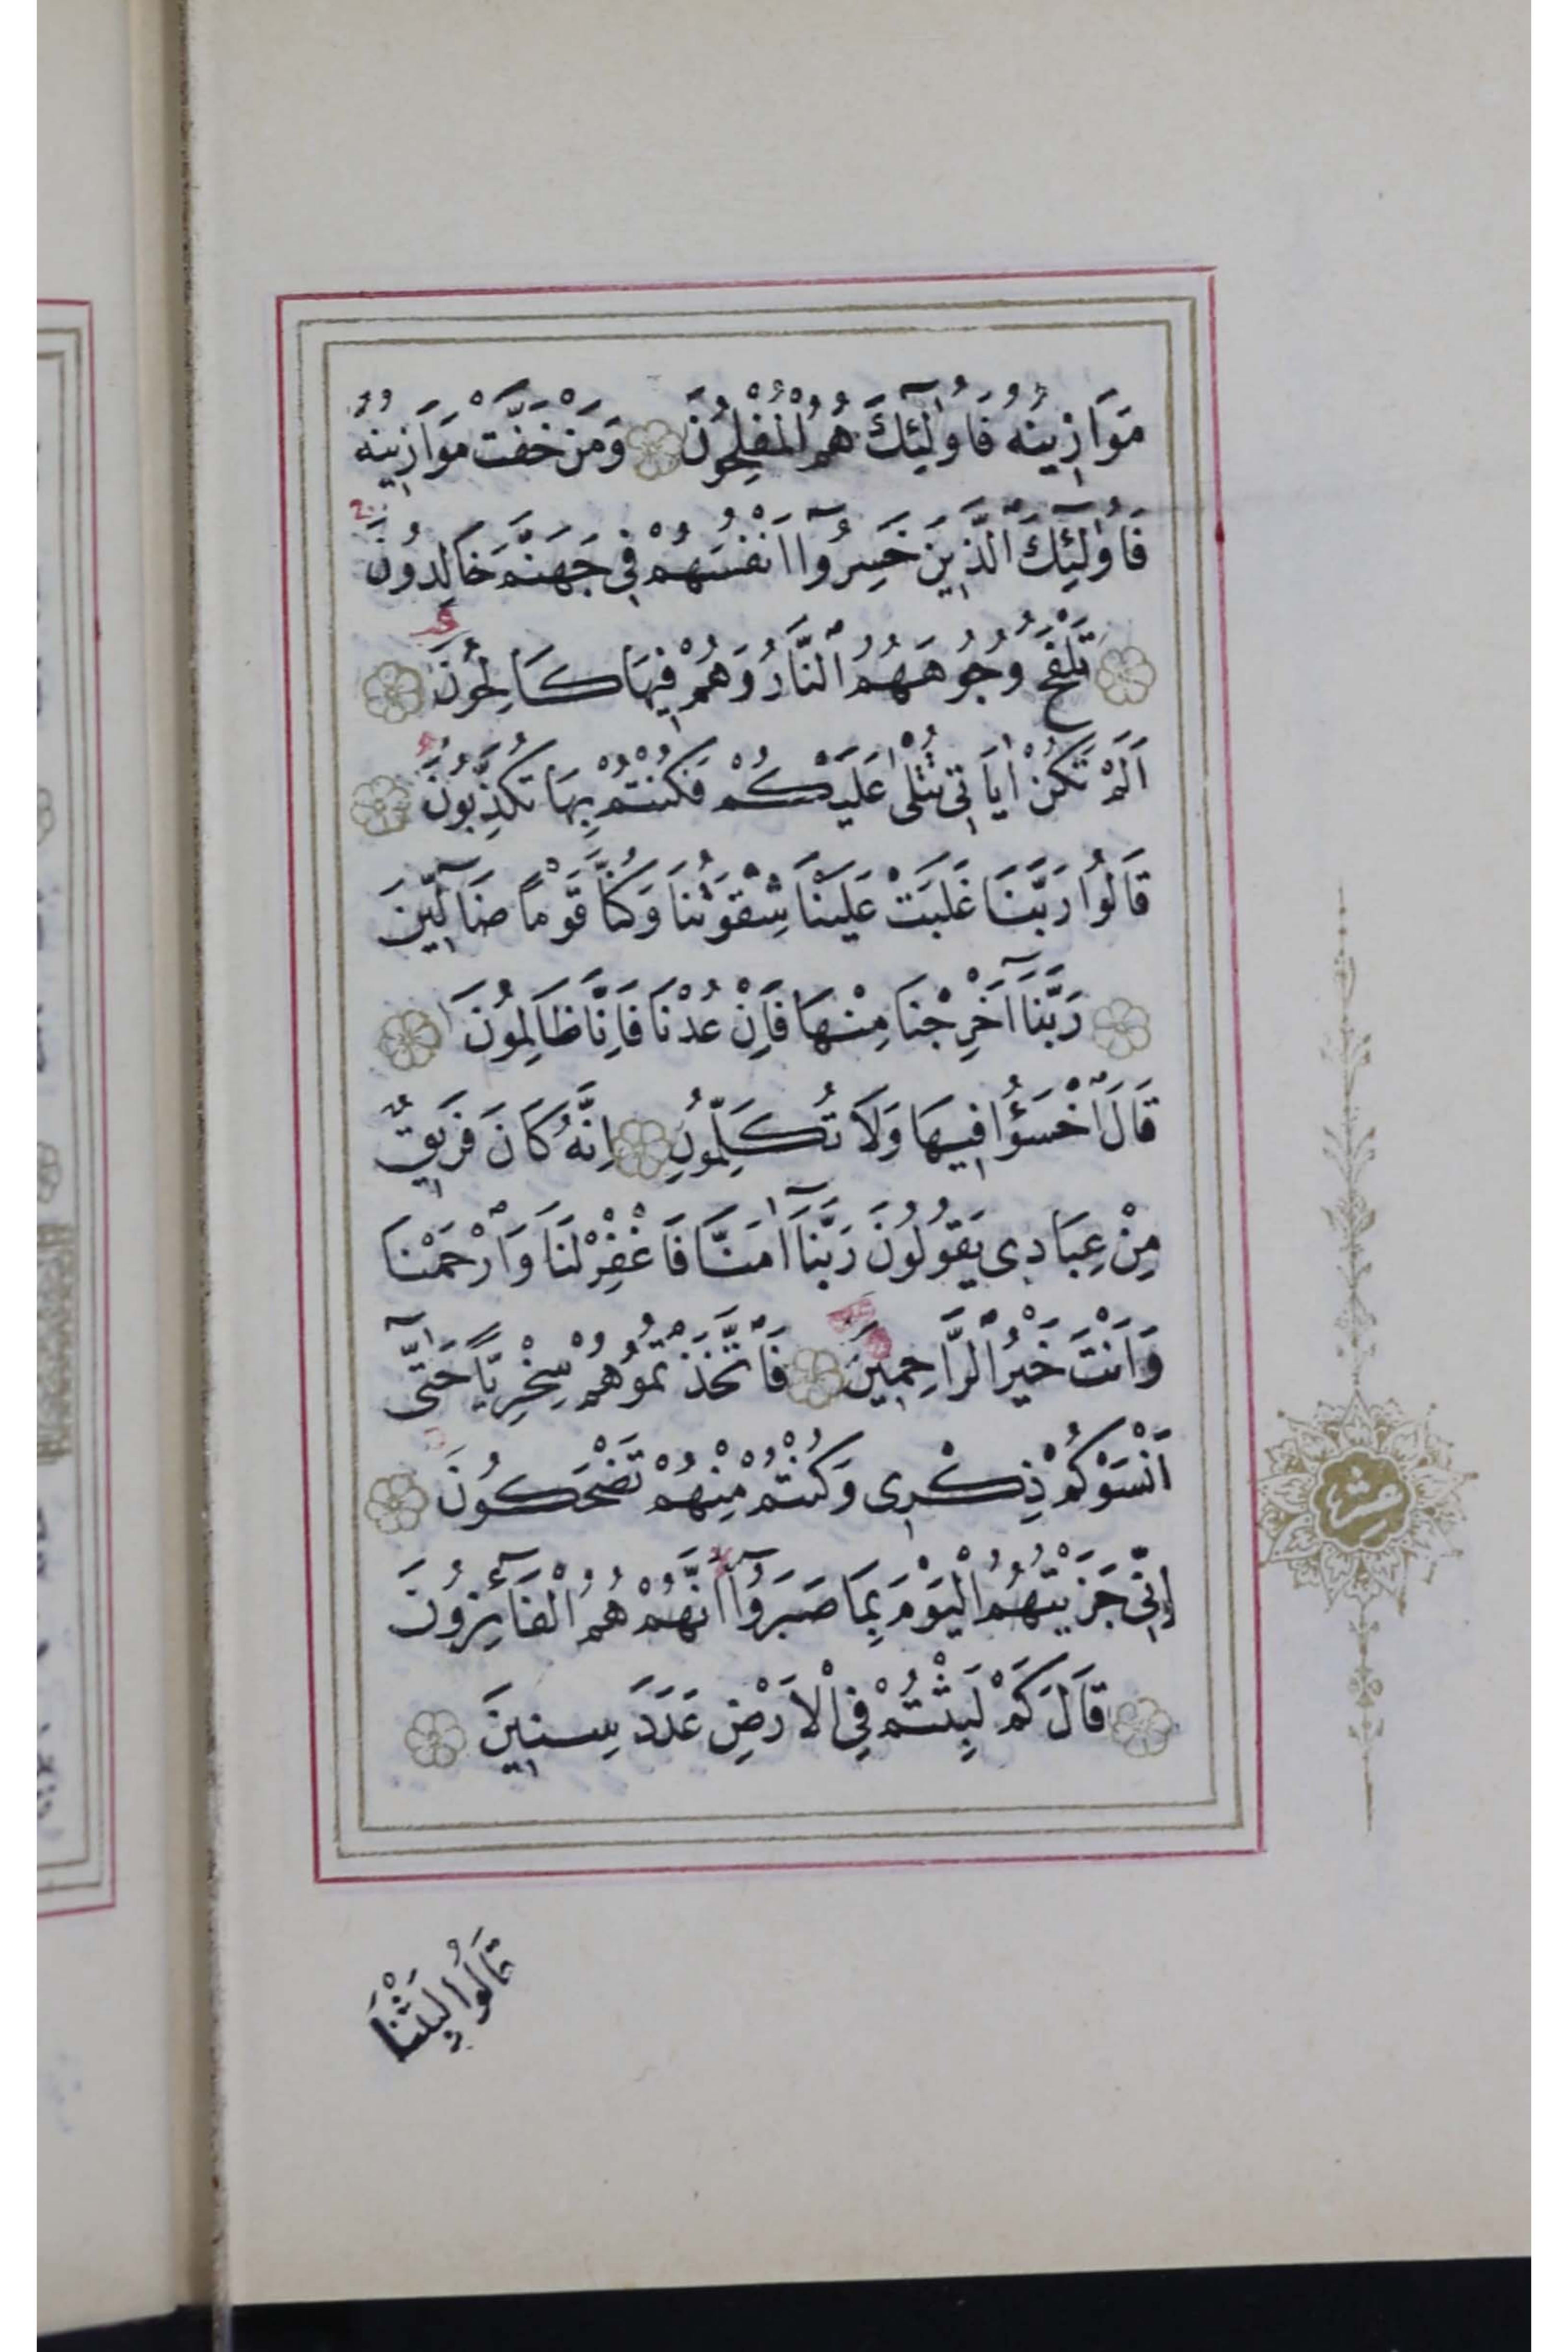 مَوَازِينُهُ فَاُولٰٓئِكَ هُمُ الْمُفْلِحُونَ وَمَنْ خَفَّتْ مَوَازِينُهُ
فَاُولٰٓئِكَ الَّذِينَ خَسِرُٓوا اَنْفُسَهُمْ فِي جَهَنَّمَ خَالِدُونَ
تَلْفَحُ وُجُوهَهُمُ النَّارُ وَهُمْ فِيهَا كَالِحُونَ
اَلَمْ تَكُنْ اٰيَاتِي تُتْلٰى عَلَيْكُمْ فَكُنْتُمْ بِهَا تُكَذِّبُونَ
قَالُوا رَبَّنَا غَلَبَتْ عَلَيْنَا شِقْوَتُنَا وَكُنَّا قَوْمًا ضَٓالِّينَ
رَبَّنَٓا اَخْرِجْنَا مِنْهَا فَاِنْ عُدْنَا فَاِنَّا ظَالِمُونَ
قَالَ اخْسَؤُا فِيهَا وَلَا تُكَلِّمُونِ اِنَّهُ كَانَ فَرِيقٌ
مِنْ عِبَادِي يَقُولُونَ رَبَّنَٓا اٰمَنَّا فَاغْفِرْ لَنَا وَارْحَمْنَا
وَاَنْتَ خَيْرُ الرَّاحِمِينَ فَاتَّخَذْتُمُوهُمْ سِخْرِيًّا حَتّٰٓى
اَنْسَوْكُمْ ذِكْرِي وَكُنْتُمْ مِنْهُمْ تَضْحَكُونَ
اِنِّي جَزَيْتُهُمُ الْيَوْمَ بِمَا صَبَرُٓوا اَنَّهُمْ هُمُ الْفَٓائِزُونَ
قَالَ كَمْ لَبِثْتُمْ فِي الْاَرْضِ عَدَدَ سِنِينَ
قَالُوا لَبِثْنَا